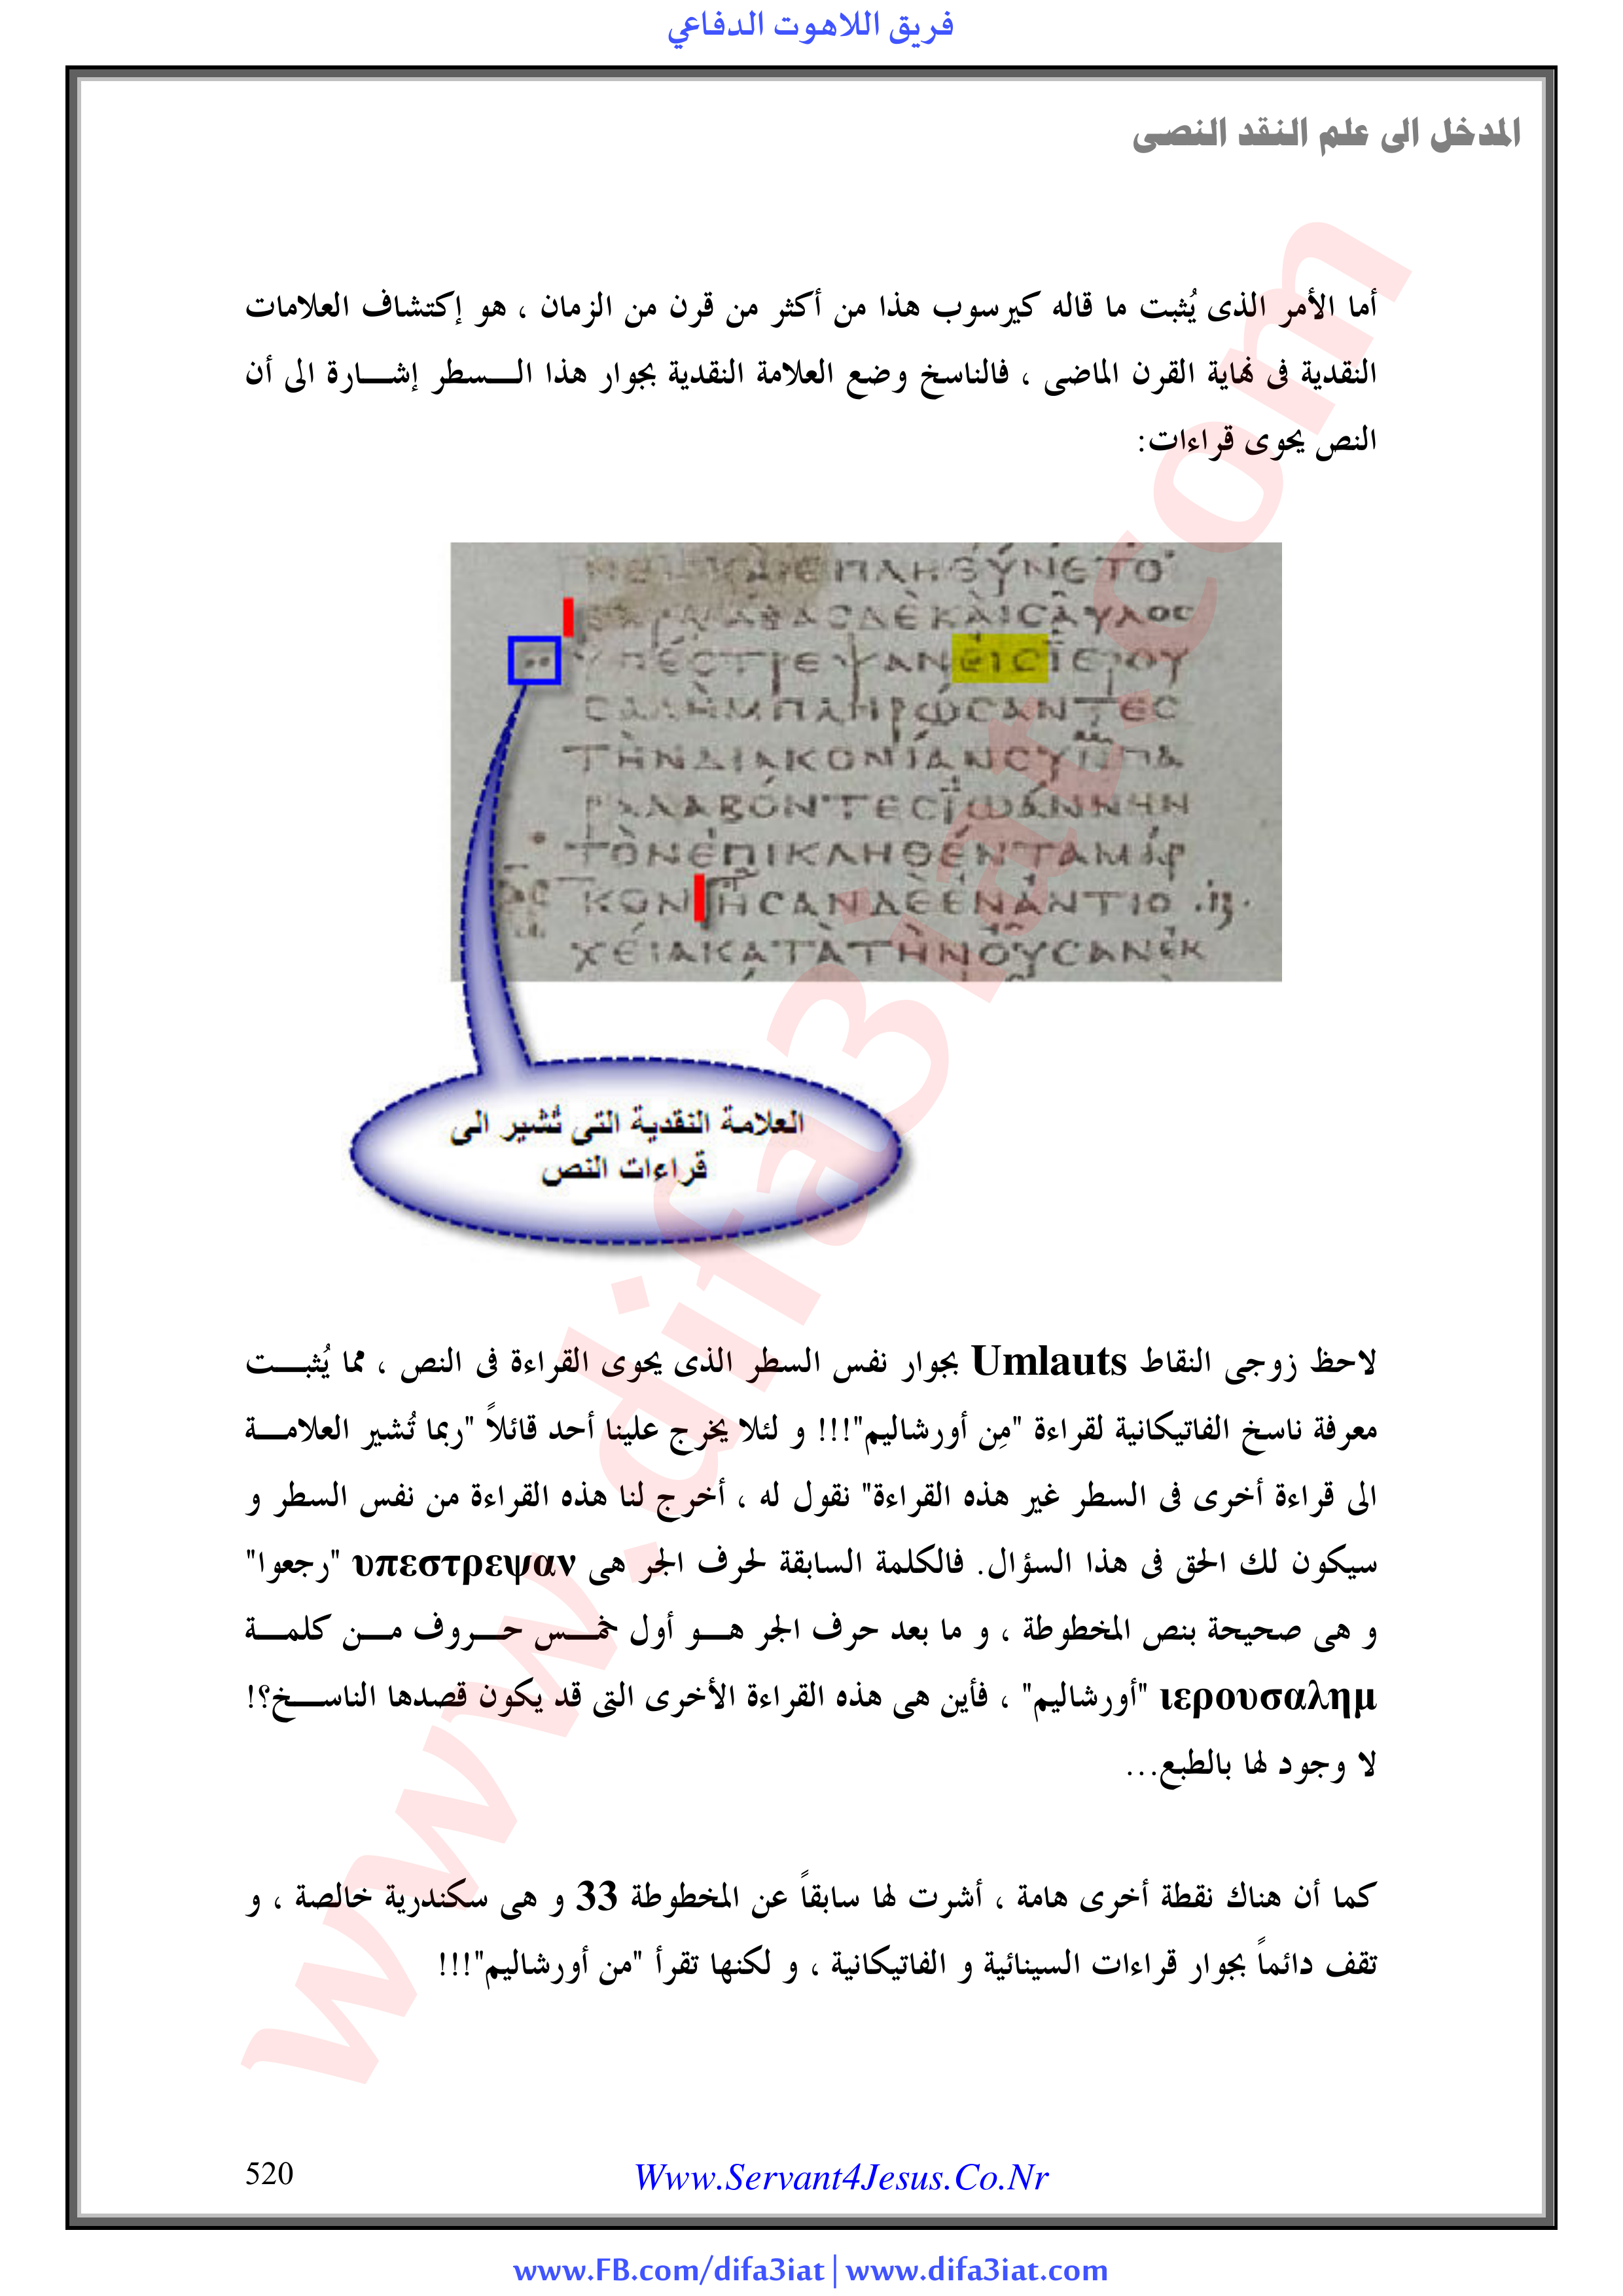 فريق اللاهوت الدفاعي
المدخل الى علم النقد النصى
أما الأمر الذى يُثبت ما قاله كيرسوب هذا من أكثر من قرن من الزمان ، هو إكتشاف العلامات
النقدية فى نهاية القرن الماضى ، فالناسخ وضع العلامة النقدية بجوار هذا السطر إشارة الى أن
النص يحوى قراءات:
ΕΠΛΗΘΎΝΕΤΟ
ΔῈΚΑῚCΑῦΛΟC
ΥΠΈCΤΡΕΨΑΝΕΙCΙΕΡΟΥ
CΑΛῊΜΠΛΗΡΏCΑΝΤΕC
ΤῊΝΔΙΑΚΟΝΊΑΝCΥΜΠΑ
ΡΑΛΑΒΌΝΤΕCΙΩΆΝΝΗΝ
ΤῸΝΕΠΙΚΛΗΘΈΝΤΑΜΑΡ
ΚΟΝΗCΑΝΔῈΕΝΑΝΤΙΟ
ΧΕΙΑΚΑΤᾺΤῊΝΟΥCΑΝΕΚ
العلامة النقدية التى تُشير الى
قراءات النص
لاحظ زوجى النقاط Umlauts بجوار نفس السطر الذى يحوى القراءة فى النص ، مما يُثبت
معرفة ناسخ الفاتيكانية لقراءة "مِن أورشاليم"!!! و لئلا يخرج علينا أحد قائلاً "ربما تُشير العلامة
الى قراءة أخرى فى السطر غير هذه القراءة" نقول له ، أخرج لنا هذه القراءة من نفس السطر و
سيكون لك الحق فى هذا السؤال. فالكلمة السابقة لحرف الجر هى υπεστρεψαν "رجعوا"
و هى صحيحة بنص المخطوطة ، و ما بعد حرف الجر هو أول خمس حروف من كلمة
ιερουσαλημ "أورشاليم" ، فأين هى هذه القراءة الأخرى التى قد يكون قصدها الناسخ؟!
لا وجود لها بالطبع...
كما أن هناك نقطة أخرى هامة ، أشرت لها سابقاً عن المخطوطة 33 و هى سكندرية خالصة ، و
تقف دائماً بجوار قراءات السينائية و الفاتيكانية ، و لكنها تقرأ "من أورشاليم"!!!
www.difa3iat.com
520
Www.Servant4Jesus.Co.Nr
www.FB.com/difa3iat | www.difa3iat.com